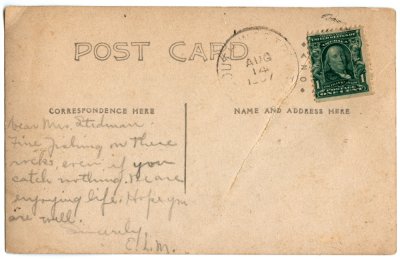 POST CARD
AUG
14
1907
UNITED STATES OF AMERICA
1 1
ONE CENT
CORRESPONDENCE HERE
NAME AND ADDRESS HERE
Dear Mrs. Stedman.
Fine fishing on these
rocks, even if you
catch nothing. We are
enjoying life. Hope you
are well.
Sincerely
C.L.M.